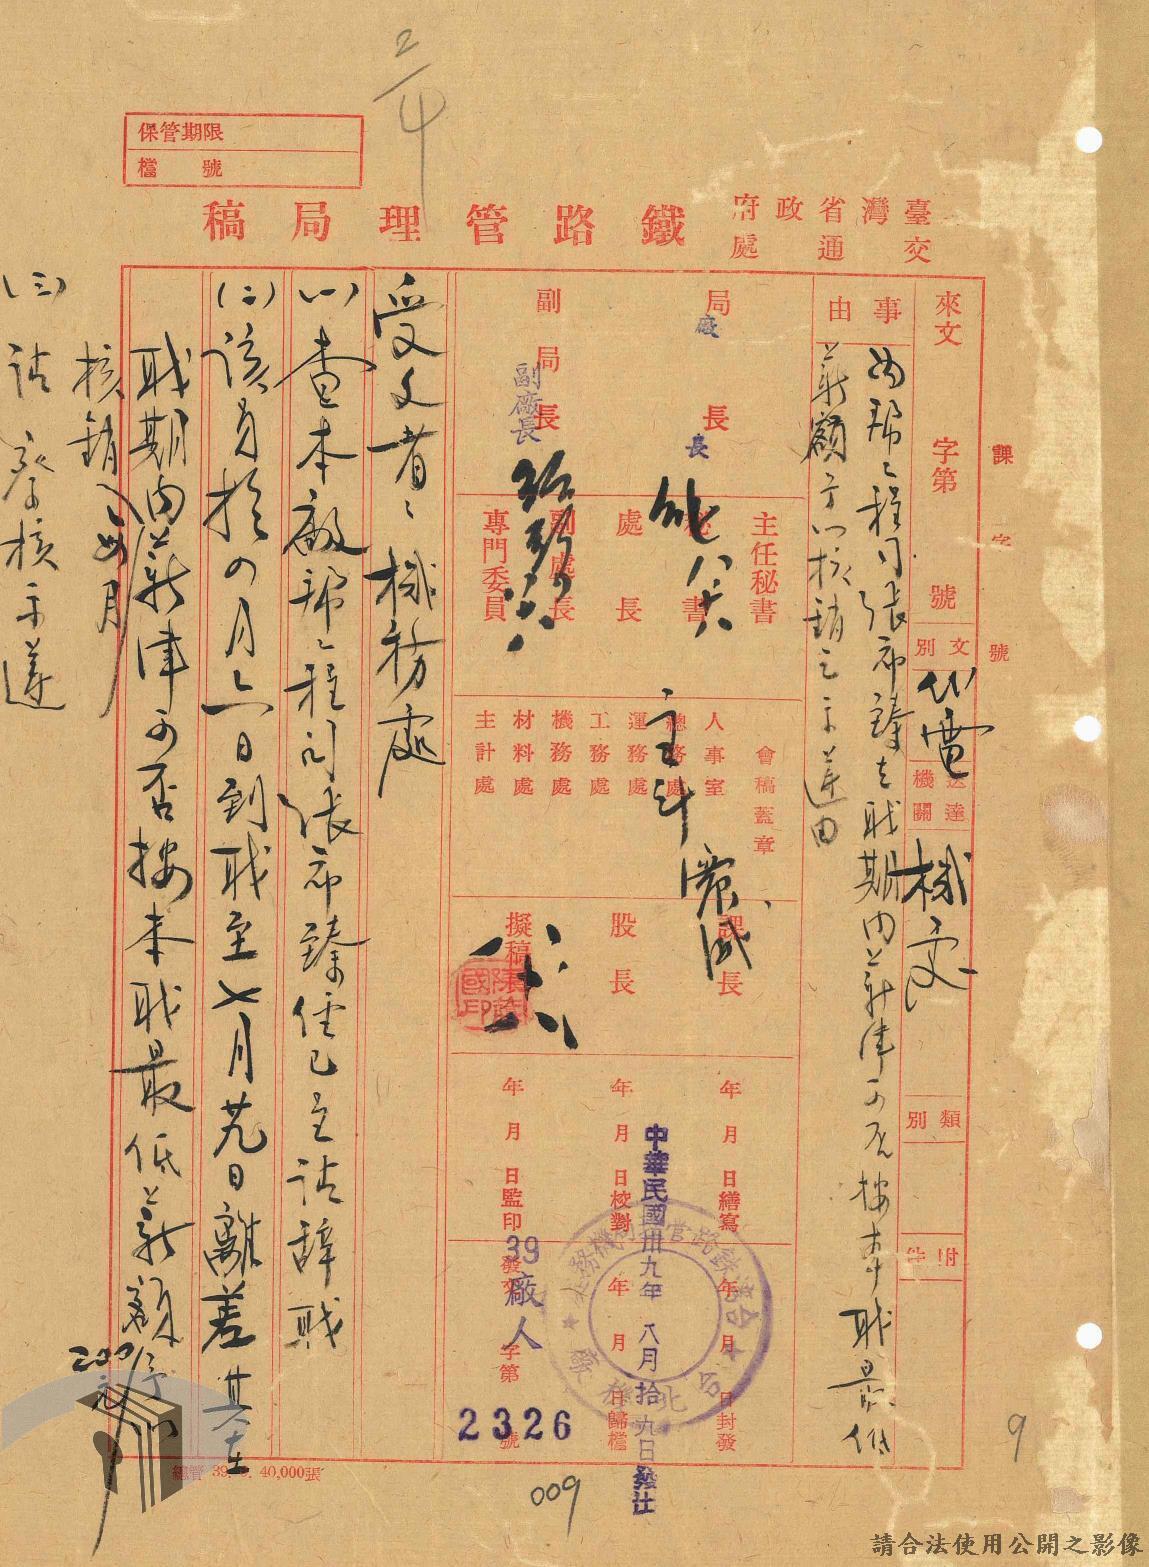 2/4
保管期限
檔　號
臺灣省政府
交通處
鐵路管理局稿
課　字　號
來文　字第　號
文別　代電
送達機關　機處
類別
附件
事由
為幫工程司張席臻在職期內薪津可否按本職最低
薪額予以核銷乞示遵由
局長
廠長
副局長
副廠長
主任秘書
秘書
處長
副處長
專門委員
會稿蓋章
人事室
總務處
運務處
工務處
機務處
材料處
主計處
課長
股長
擬稿
年　月　日繕寫
年　月　日校對
年　月　日監印
年　月　日封發
年　月　日歸檔
發文　字第　號
中華民國卅九年八月拾九日發辻
39廠人
2326
受文者：機務處
(一)查本廠幫工程司張席臻係已呈請辭職
(二)該員於四月六日到職至七月廿九日離差其在
職期內薪津可否按本職最低薪額200元予以
核銷乞
(三)請　察核示遵
40,000張
009
9
請合法使用公開之影像